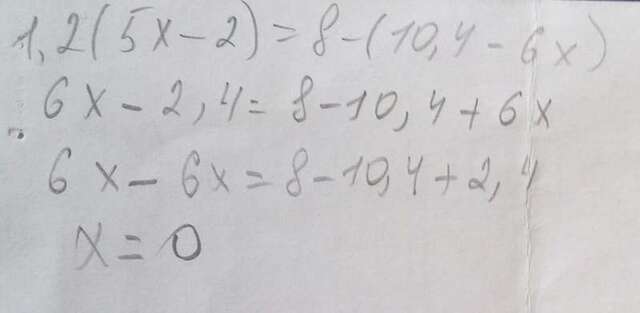 1,2(5x-2)=8-(10,4-6x)
6x-2,4=8-10,4+6x
6x-6x=8-10,4+2,4
x=0